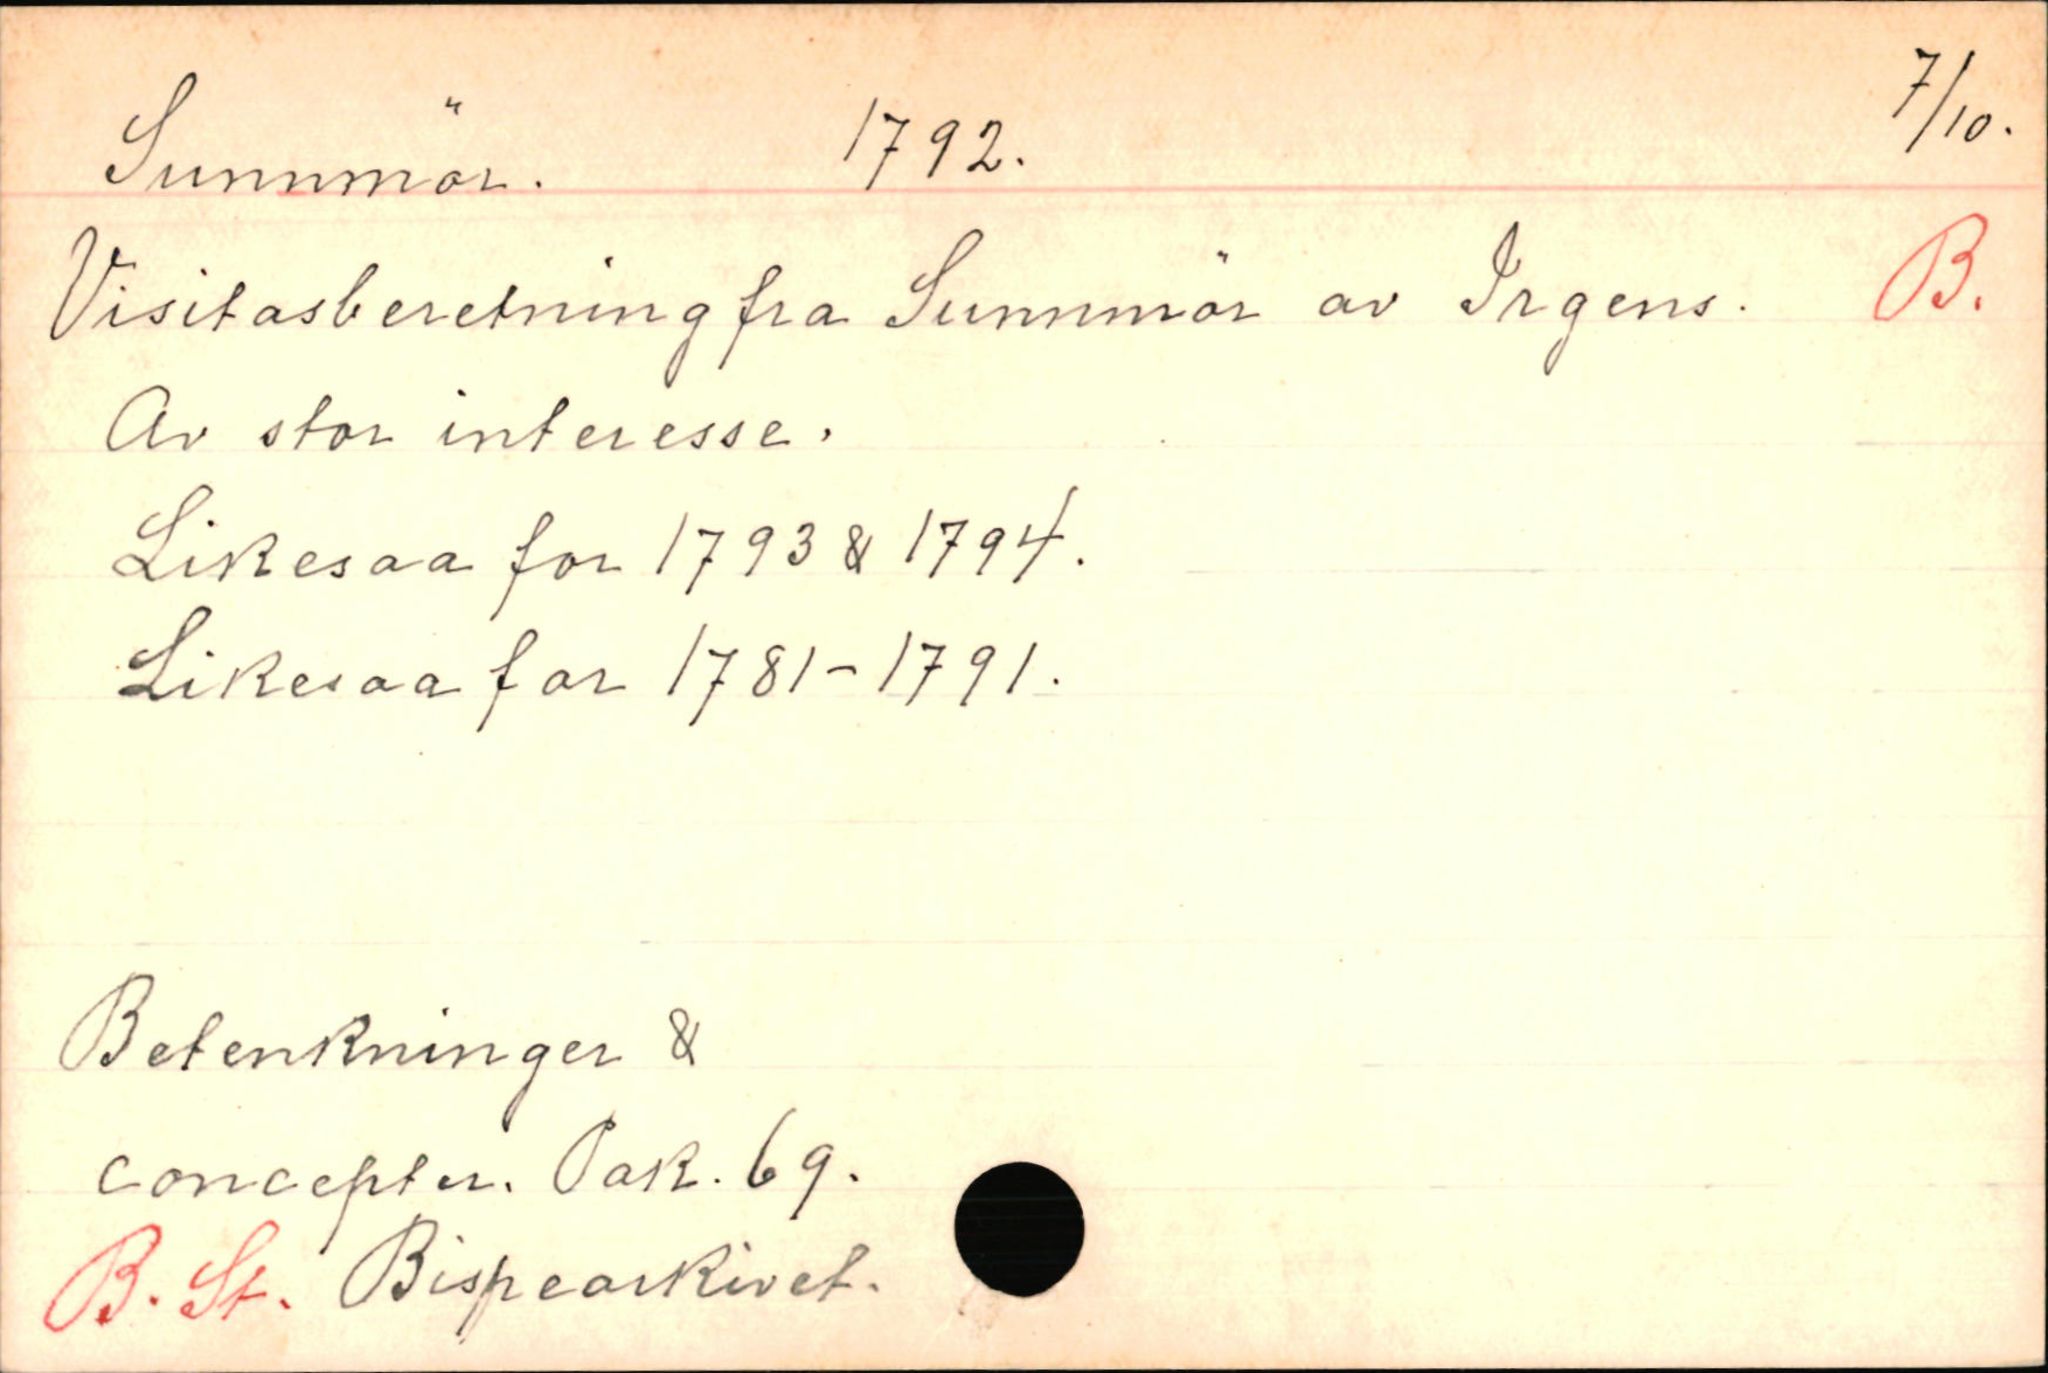 Sunnmör. 1792. 7/10.
Visitasberetning fra Sunnmör av Irgens. B.
Av stor interesse.
Likesaa for 1793 & 1794.
Likesaa for 1781-1791.
Betenkninger &
concepter. Pak. 69.
B. St. Bispearkivet.